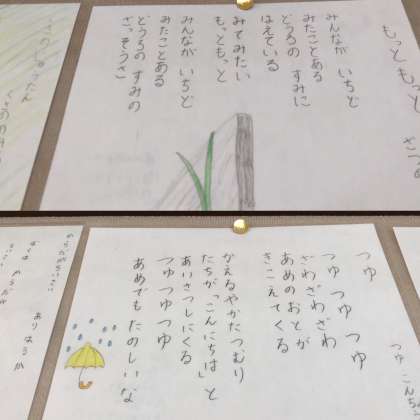 もっと もっと ざっ
みんなが いちど
みたことある
どうろの すみに
はえている
みてみたい
もっともっと
みんなが いちど
みたことある
どうろの すみの
ざっそうさ
つゆ
つゆ つゆ つゆ
ざわざわざわ
あめのおとが
きこえてくる
かえるやかたつむり
たちが「こんにちは」と
あいさつしにくる
つゆつゆつゆ
あめでもたのしいな
つゆ こんち